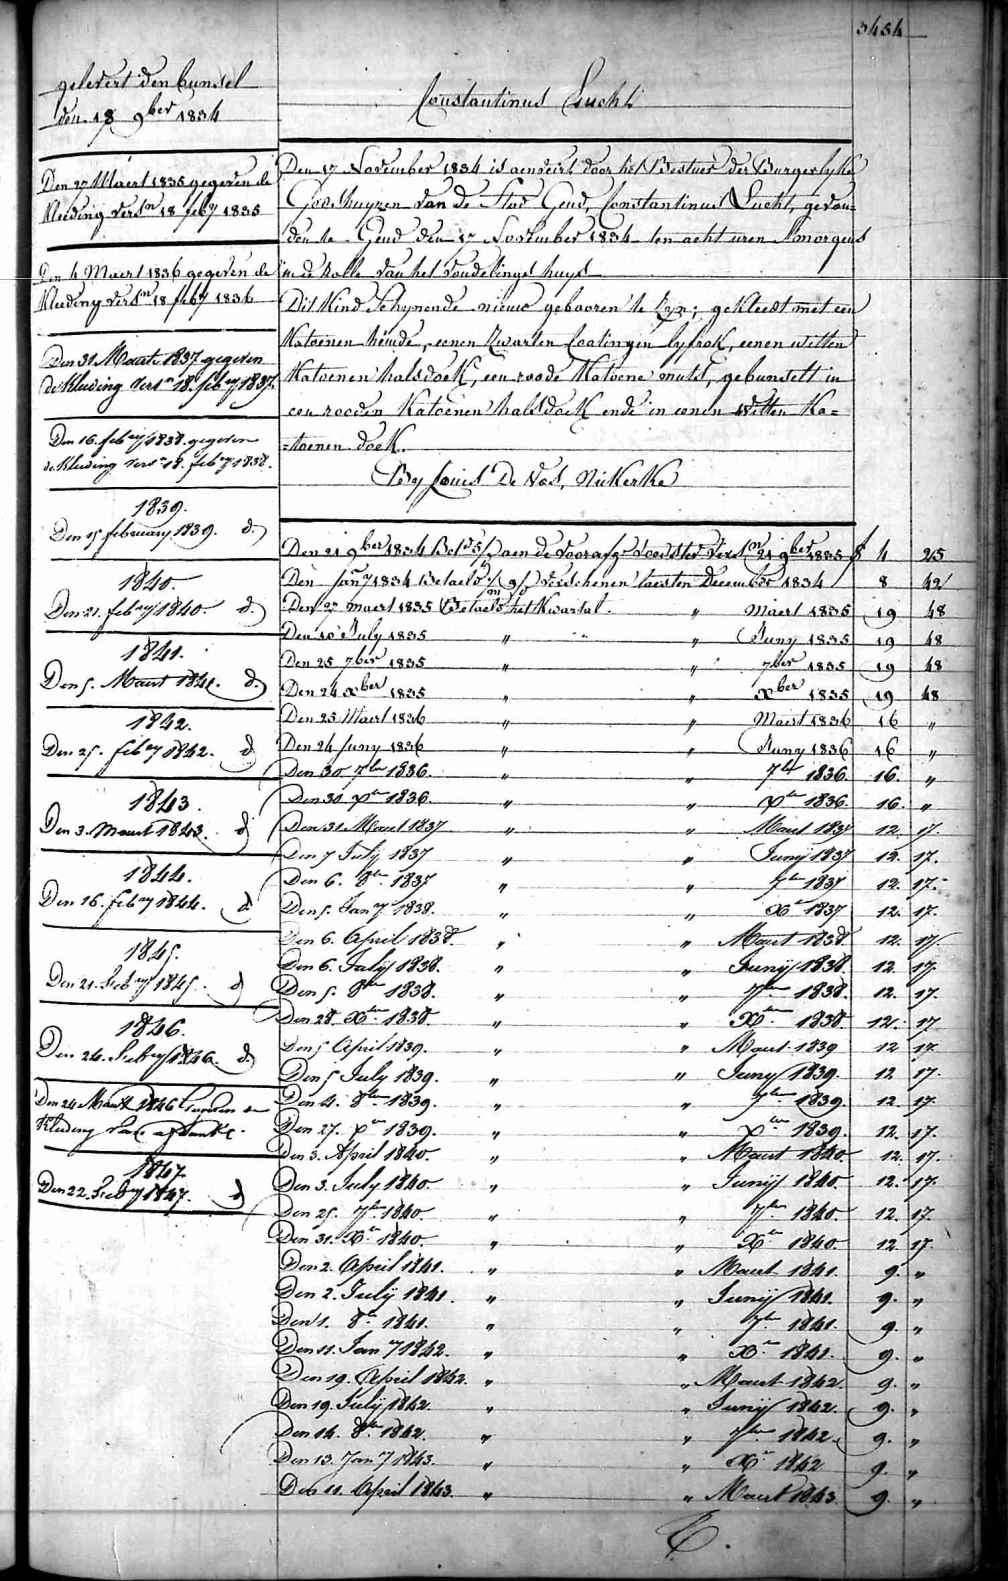 3454
gelevert den bunsel
den 18 9ber 1834
Den 27 Maert 1835 gegeven de
kleeding versn 18 feby 1835
Den 4 Maert 1836 gegeven de
kleeding versn 18 feby 1836
Den 31 Maart 1837 gegeven
de kleding versn 18 febry 1837.
Den 16. febry 1838. gegeven
de kleding versn 18. febry 1838.
1839.
Den 15 february 1839. d.
1840.
Den 21. febry 1840. d.
1841.
Den 5. Maart 1841. d.
1842.
Den 25. febry 1842. d
1843.
Den 3. Maart 1843. d
1844.
Den 16. febry 1844. d
1845.
Den 21. Febry 1845. d
1846.
Den 24. Febry 1846. d.
Den 24 Maart 1846
Kleding
1847.
Den 22. Febry 1847. d
Constantinus Lucht
Den 17 November 1834 is aenveirt door het Bestuer der Burgerlyke
Godshuyzen van de Stad Gend, Constantinus Lucht, gevon=
den te Gend den 17 November 1834 ten acht uren smorgens
in de rolle van het vondelings huys
Dit Kind schynende nieuw gebooren te zyn; gekleedt met een
Katoenen hemde, eenen zwarten Coatingen lyfrok, eenen witten
Katoenen halsdoek, een roode Katoene muts, gebunselt in
een rooden Katoenen halsdoek ende in eenen witten Ka=
=toenen doek.
By Louis De Vos, Nukerke
Den 21 9ber 1834 aen de voorafge voedster versn 21 9ber 1835 f 4 25
Den Jany 1834 Betaeld verschenen laesten December 1834 8 42
Den 27 maert 1835 Betaeld het Kwartal. " Maert 1835 19 48
Den 10 July 1835 " " Juny 1835 19 48
Den 25 7ber 1835 " " 7ber 1835 19 48
Den 24 xber 1835 " " xber 1835 19 48
Den 25 Maert 1836 " " Maert 1836 16 "
Den 24 Juny 1836 " " Juny 1836 16 "
Den 30 7ber 1836. " " 7ber 1836 16. "
Den 30 xber 1836. " " xber 1836 16. "
Den 31 Maart 1837 " " Maart 1837 12. 17.
Den 7 July 1837 " " Junij 1837 12. 17.
Den 6. 8ber 1837 " " 7ber 1837 12. 17.
Den 5. Jany 1838. " " Xber 1837 12. 17.
Den 6. April 1838. " " Maart 1838. 12. 17.
Den 6. Julij 1838. " " Junij 1838. 12. 17.
Den 5. 8ber 1838. " " 7ber 1838. 12. 17.
Den 28. Xber 1838 " " Xber 1838. 12. 17
Den 5 April 1839. " Maart 1839 12 17.
Den 5 July 1839. " " Juny 1839. 12 17.
Den 4. 8ber 1839. " " 7ber 1839. 12. 17.
Den 27. xber 1839. " " xber 1839. 12. 17.
Den 3. April 1840. " " Maart 1840. 12. 17.
Den 3. July 1840 " " Junij 1840. 12. 17.
Den 25. 7ber 1840. " " 7ber 1840. 12. 17.
Den 31. Xber 1840. " " Xber 1840. 12. 17
Den 2. April 1841. " " Maart 1841. 9. "
Den 2. Julij 1841. " " Junij 1841. 9. "
Den 1. 8ber 1841. " " 7ber 1841. 9. "
Den 11. Jany 1842. " " Xber 1841. 9. "
Den 19. April 1842. " " Maart 1842. 9. "
Den 19. Julij 1842. " " Junij 1842. 9. "
Den 14. 8ber 1842. " " 7ber 1842. 9. "
Den 13. Jany 1843. " " Xber 1842 9. "
Den 11. April 1843. " " Maart 1843. 9. "